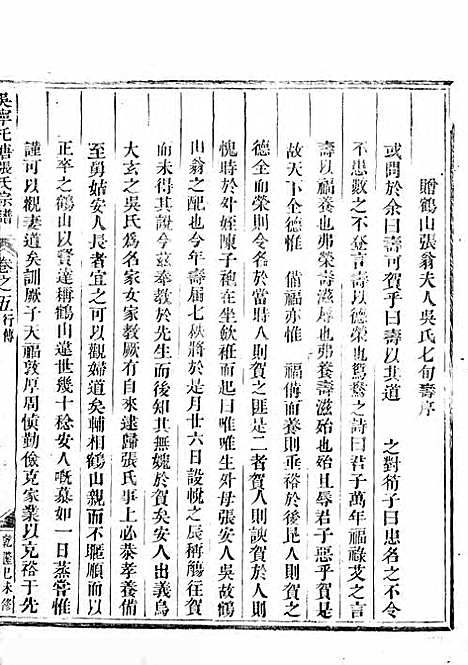 贈鶴山張翁夫人吳氏七旬壽序
或問於余曰壽可賀乎曰壽以其道 之對荀子曰患名之不令
不患數之不豋言以德榮也鴛鴦之詩曰君子萬年福祿艾之言
壽以福養也弗榮壽滋殆也弗養壽滋始也且辱君子惡乎賀
故天下全德惟 備福亦惟 備而養則垂裕於後昆人則
德全而榮則令聞於當時人則賀之匪是二者賀人人則
愧時於外姪陳子稚在坐歛衽而起曰唯唯生外母張安人吳故鶴
山翁之配也今年壽届七秩將於是月廿六日設帨之辰稱觴往賀
而未得其說今兹奉教於先生而後知其無媿於賀矣安人出義烏
大玄之吳氏爲名家女家教厥有自來逮歸張氏事上必恭孝養備
至舅姑安人長者宜之可以觀婦道矣輔相鶴山親而不暱順而以
正卒之鶴山以賢達稱鶴山違世幾十稔安人哦慕如一日蒸嘗惟
謹可以觀妻道矣訓厥子天福敦厚周慎勤儉克家業以克裕于先
吳寧托塘張氏宗譜 卷之五 行傳